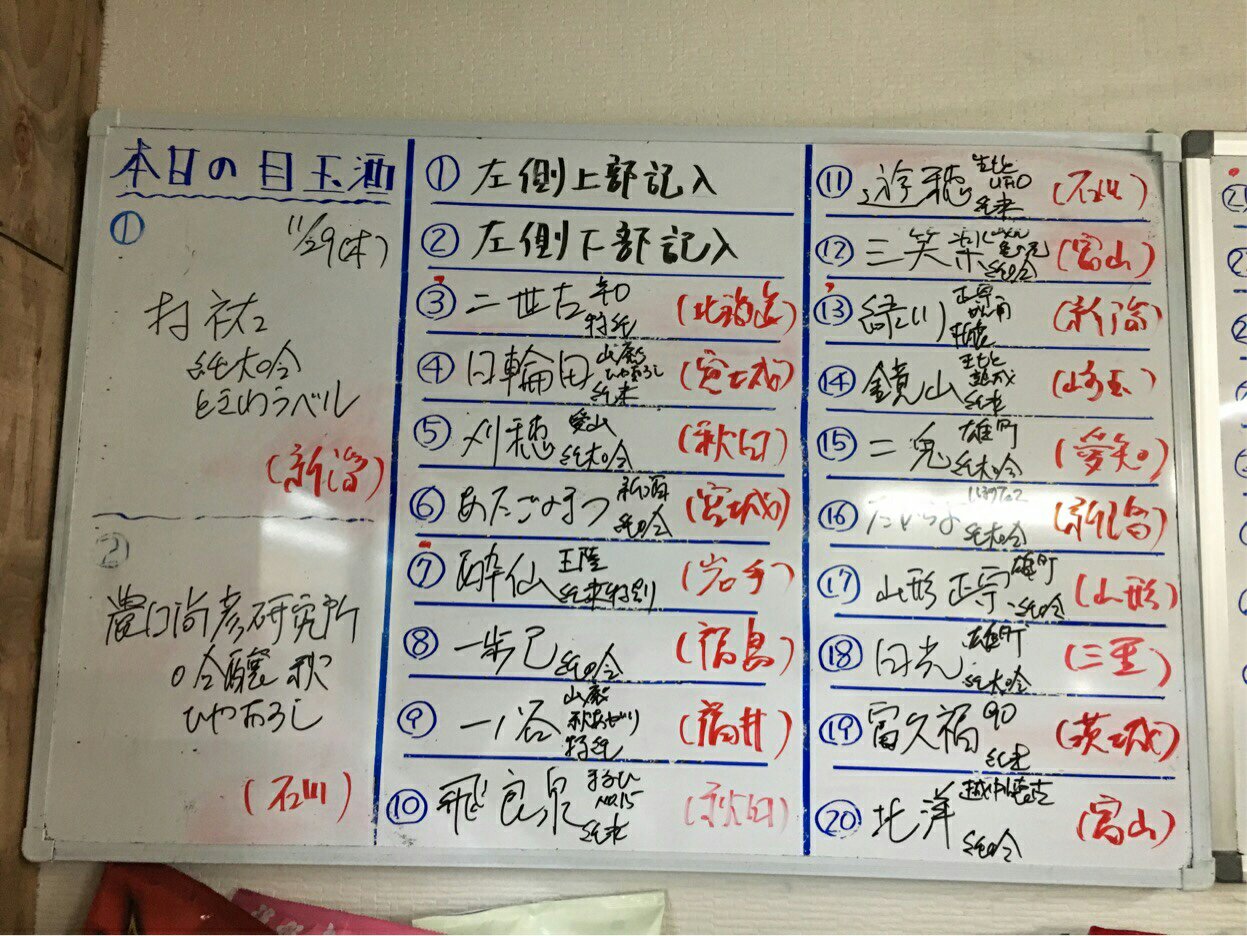 本日の目玉酒
①
11/29(木)
村祐
純大吟
ときわラベル
(新潟)
②
農口尚彦研究所
吟醸 秋
ひやおろし
(石川)
① 左側上部記入
② 左側下部記入
③ 二世古 辛口 特純 (北海道)
④ 日輪田 山廃 ひやおろし 純米 (宮城)
⑤ 刈穂 愛山 純大吟 (秋田)
⑥ あたごのまつ 新酒 純吟 (宮城)
⑦ 酔仙 純米特別 (岩手)
⑧ 一歩己 純吟 (福島)
⑨ 一乃谷 山廃 特純 (福井)
⑩ 飛良泉 まるひ NO.15 純米 (秋田)
⑪ 遊穂 生もと UFO 純米 (石川)
⑫ 三笑楽 純吟 (富山)
⑬ 緑川 正宗 (新潟)
⑭ 鏡山 生もと 純米 (埼玉)
⑮ 二兎 雄町 純大吟 (愛知)
⑯ たかちよ 純大吟 (新潟)
⑰ 山形正宗 雄町 純吟 (山形)
⑱ 日光 雄町 純大吟 (三重)
⑲ 富久福 90 純米 (茨城)
⑳ 北洋 純吟 (富山)